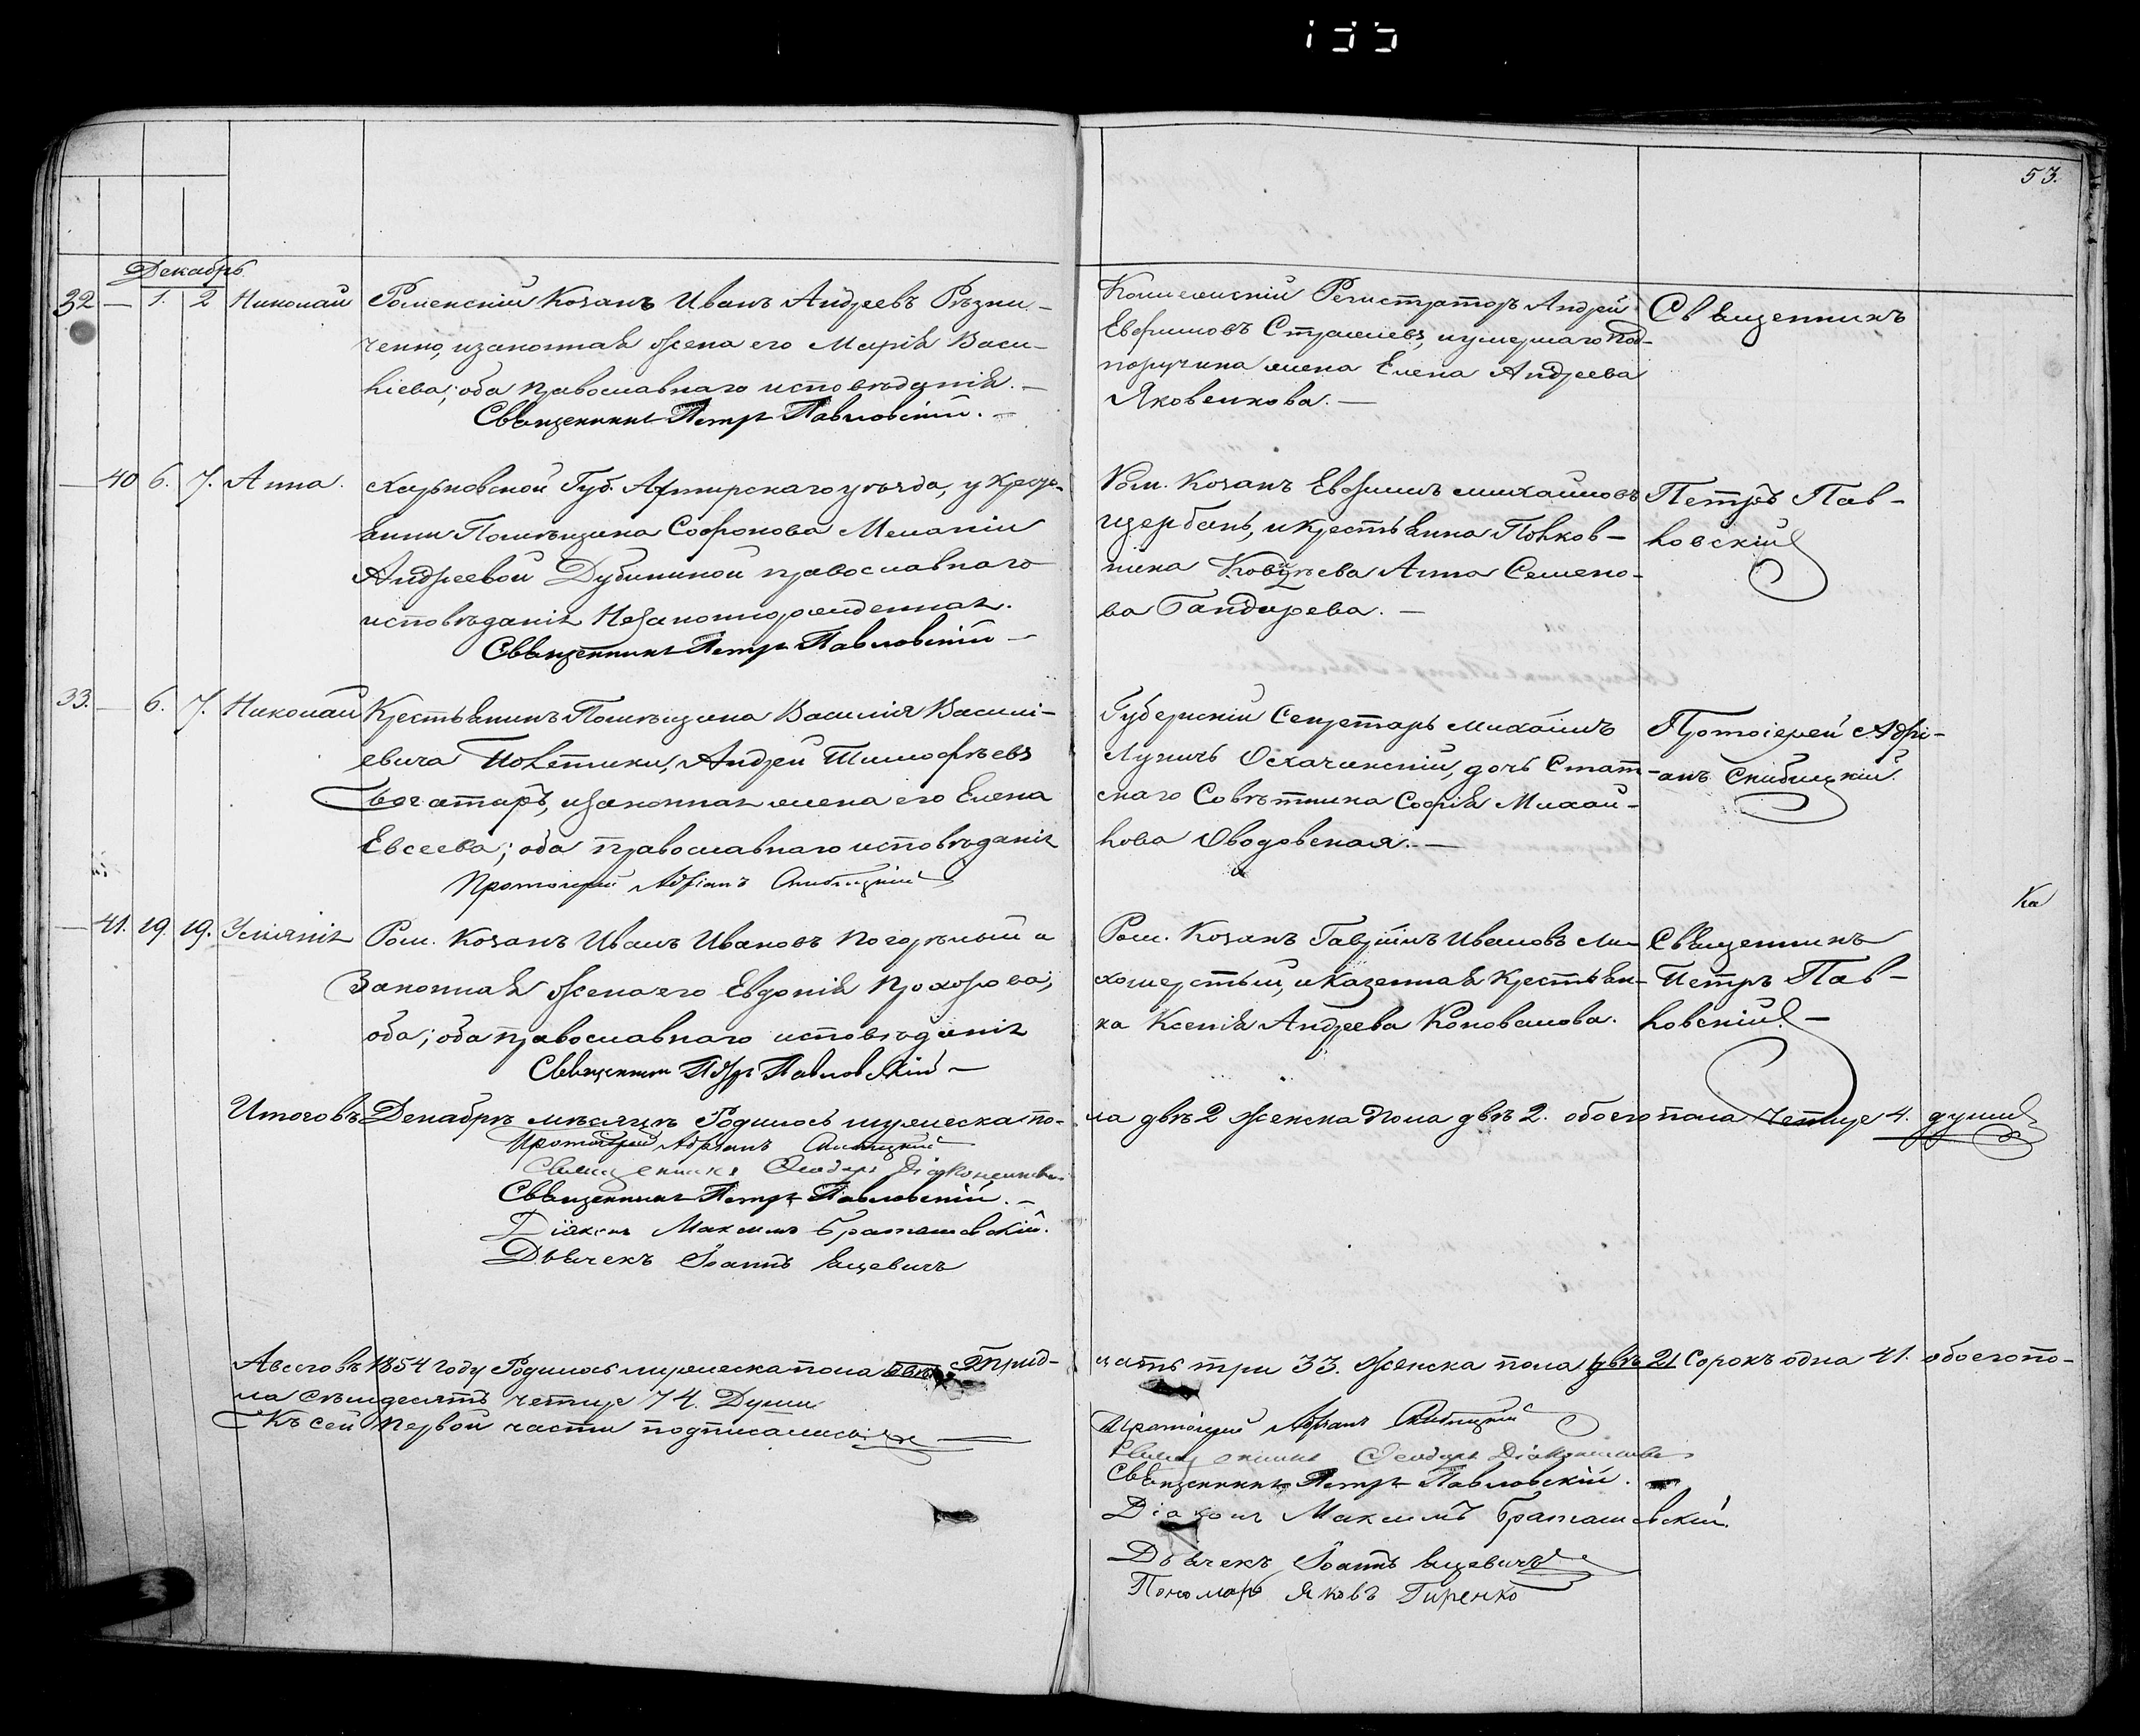 53.
Декабрь
32 — 1. 2 Николай
Роменскій Козакъ Иванъ Андреевъ Рѣзни-
ченко, изаконная жена его Марія Васи-
лієва; оба православнаго исповѣданія. —
Священникъ Петръ Павловскій. —
Колежскій Регистраторъ Андрей
Евфимовъ, иумершаго Под-
поручика жена Елена Андреева
Яковенкова. —
Священникъ
— 40 6. 7. Анна.
Харьковской Губ. Ахтирскаго уѣзда, у Кресть-
янки Помѣщика Софронова Меланіи
Андреевой Дубининой православнаго
исповѣданія Незаконнорожденная.
Священникъ Петръ Павловскій —
Ром. Козакъ Евфимъ Михаиловъ
щербань, икрестьянка Полков-
ника Анна Семено-
ва —
Петръ Пав-
ловскій
33. — 6. 7. Николай
Крестьянинъ Помѣщика Василія Василі-
евича Полетики, Андрей Тимофѣевъ
Богатирь, изаконная жена его Елена
Евсеева; оба православнаго исповѣданія
Протоіерей Адріанъ Скибицкій
Губернскій Секретарь Михаилъ
Лукичъ Осхачинскій, дочь Стат-
скаго Совѣтника Софія Михаи-
лова Оводовская. —
Протоіерей Адрі-
анъ Скибицкій.
Ка
— 41. 19. 19. Уліянія
Ром. Козакъ Иванъ Ивановъ Погорѣлый и
Законная жена его Евдокія Прохорова,
оба; оба православнаго исповѣданія
Священникъ Петръ Павловскій —
Ром. Козакъ Гавріилъ Ивановъ Ли-
хошерстый, иКазенная Крестьян-
ка Ксенія Андреева Коновалова.
Священникъ
Петръ Пав-
ловскій. —
Итого въ Декабрѣ мѣсяцѣ Родилось мужеска по-
ла двѣ 2 женска Пола двѣ 2. обоего пола четыре 4. души
Протоіерей Адріанъ Скибицкій
Священникъ Ѳеодоръ
Священникъ Петръ Павловскій. —
Діаконъ Максимъ Браташевскій.
Дьячекъ Іоаннъ Яцевичъ
Авсего въ 1854 году Родилось мужеска пола двѣ Трид-
цать три 33. Женска пола двѣ 2 Сорокъ одна 41. обоего по-
ла Семдесятъ четыре 74. Души
Къ сей Первой части подписались:
Протоіерей Адріанъ Скибицкій
Священникъ Ѳеодоръ
Священникъ Петръ Павловскій.
Діаконъ Максимъ Браташевскій.
Дьячекъ Іоаннъ Яцевичъ
Пономарь Яковъ Гиренко